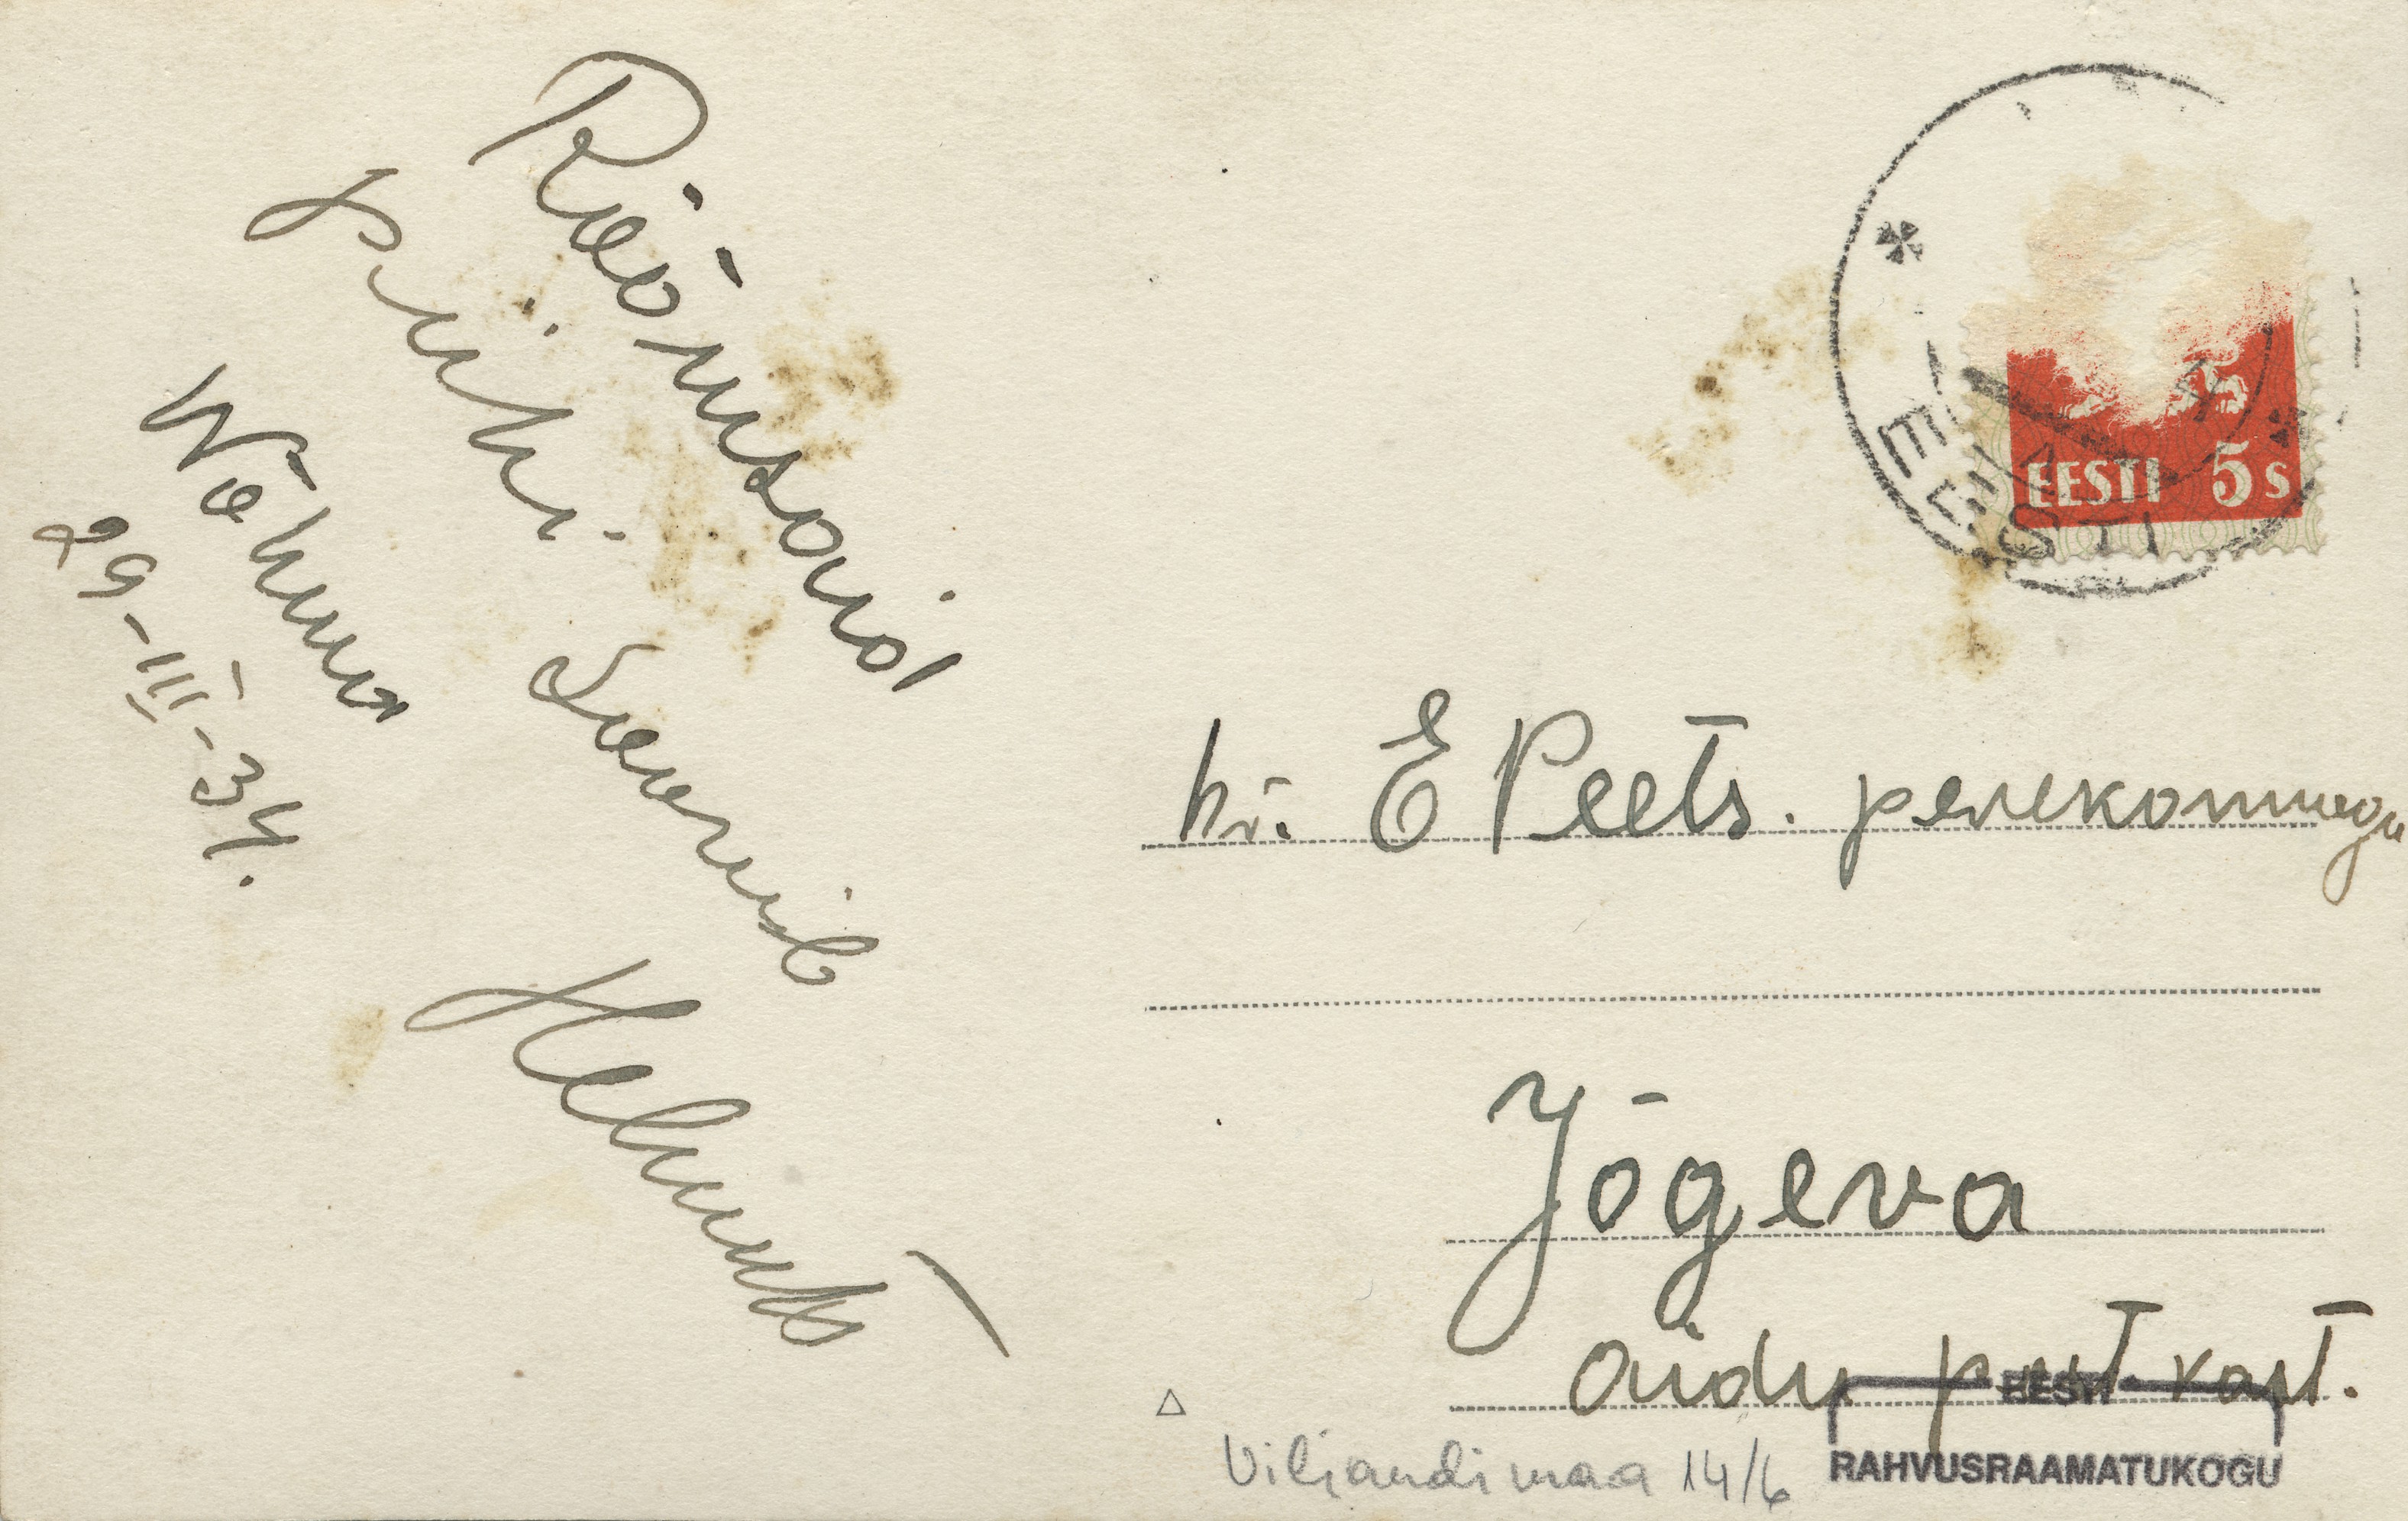 Rõõmsaid
pühi.
Soovib
Helmut
Võhma
29-III-34.
EESTI 5 s
EESTI
hr. E Peets. perekonnaga
Jõgeva
Aidu post. kast.
EESTI
RAHVUSRAAMATUKOGU
Viljandimaa 14/6